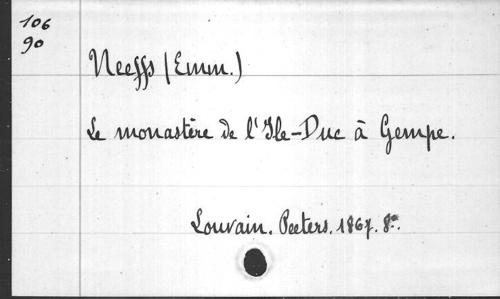 106
90
Neeffs (Emm.)
Le monastère de l'Ile-Duc à Gempe.
Louvain. Peeters. 1867. 8°.